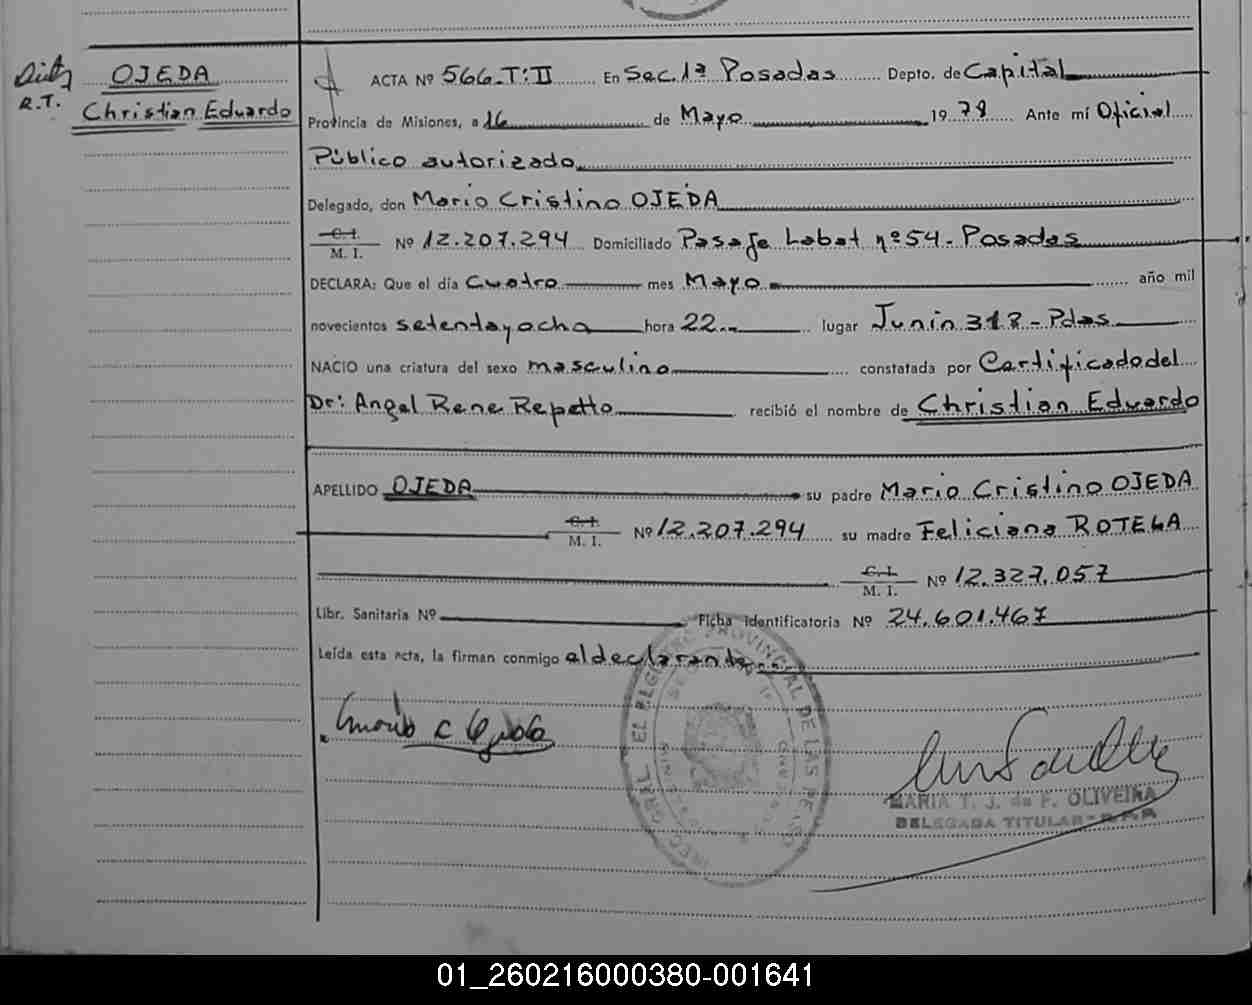 OJEDA
R.T.
Christian Eduardo
ACTA Nº 566-T:II En Sec. 1ª Posadas Depto. de Capital
Provincia de Misiones, a 16 de Mayo 19 78 Ante mí Oficial
Público autorizado
Delegado, don Mario Cristino OJEDA
C. I.
M. I. Nº 12.207.294 Domiciliado Pasaje Labat nº 54 - Posadas
DECLARA: Que el día Cuatro mes Mayo año mil
novecientos setentayocho hora 22.- lugar Junin 318 - Pdas
NACIO una criatura del sexo masculino constatada por Certificado del
Dr: Angel Rene Repetto recibió el nombre de Christian Eduardo
APELLIDO OJEDA su padre Mario Cristino OJEDA
C. I.
M. I. Nº 12.207.294 su madre Feliciana ROTELA
C. I.
M. I. Nº 12.327.057
Libr. Sanitaria Nº Ficha identificatoria Nº 24.601.467
Leída esta acta, la firman conmigo el declarante
MARIA T. J. de F. OLIVEIRA
DELEGADA TITULAR
01_260216000380-001641